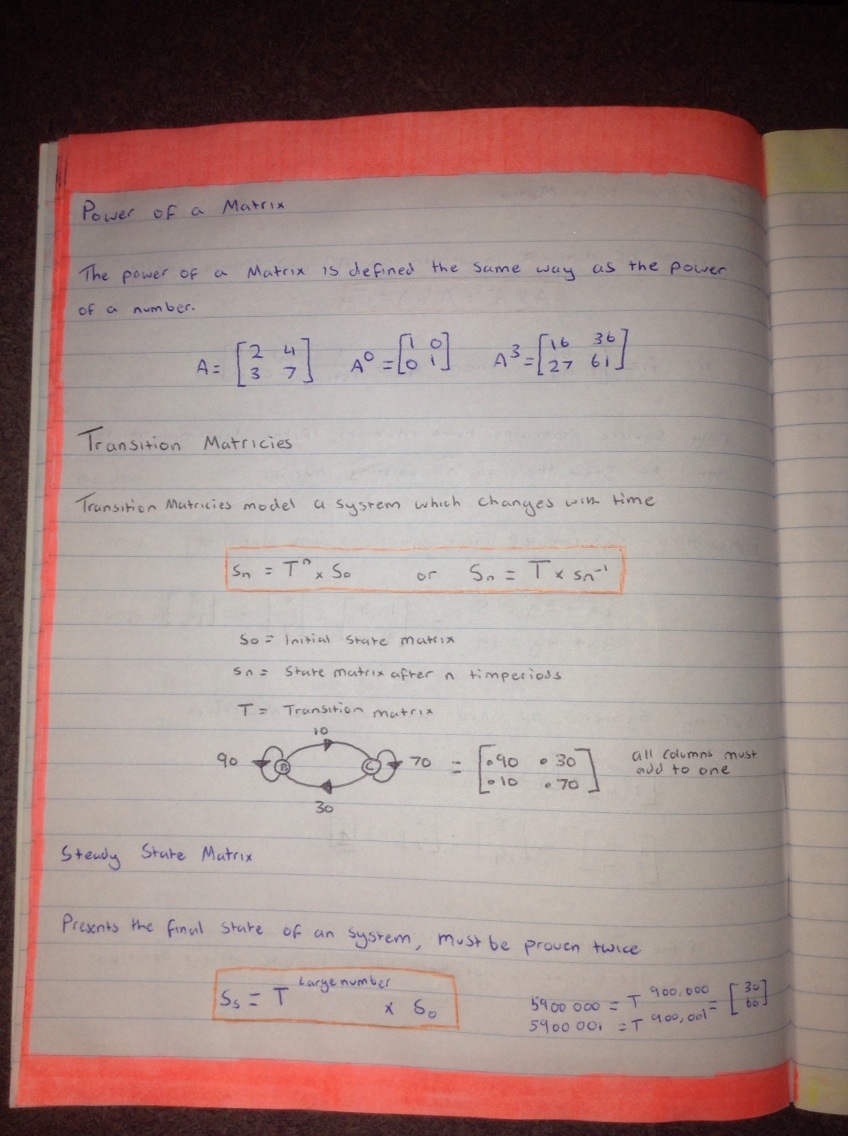 Power of a Matrix
The power of a Matrix is defined the same way as the power
of a number.
A = [2 4; 3 7] A⁰ = [1 0; 0 1] A³ = [16 36; 27 61]
Transition Matricies
Transition Matricies model a system which changes with time
Sn = Tⁿ x S₀ or Sn = T x Sn⁻¹
S₀ = Initial state matrix
Sn = State matrix after n timperiods
T = Transition matrix
10
90 B C 70 = [.90 .30; .10 .70] all columns must
add to one
30
Steady State Matrix
Presents the final state of an system, must be proven twice
Ss = T Large number x S₀
S900 000 = T 900,000 = [30; 60]
S900 001 = T 900,001